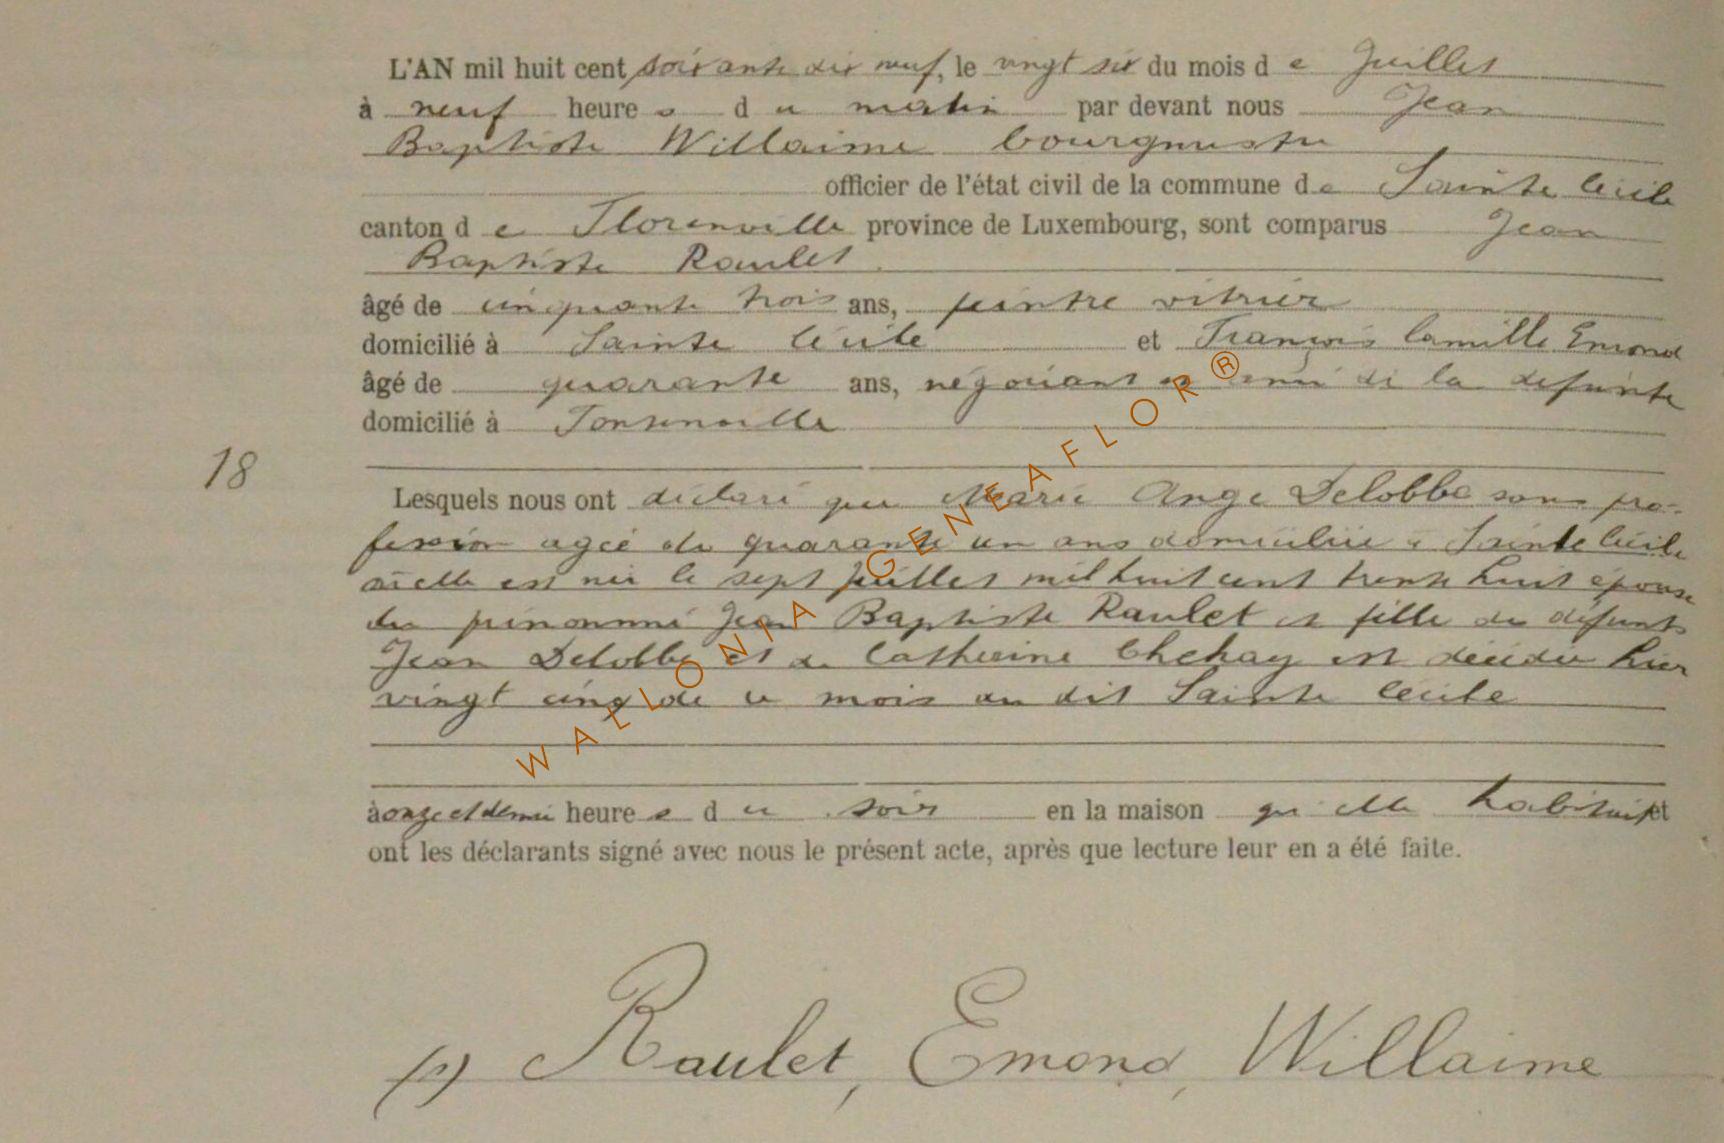 L'AN mil huit cent soixante dix neuf, le vingt six du mois de Juillet
à neuf heures du matin par devant nous Jean
Baptiste Willaime bourgmestre
officier de l'état civil de la commune de Sainte Cécile
canton de Florenville province de Luxembourg, sont comparus Jean
Baptiste Raulet
âgé de cinquante trois ans, peintre vitrier
domicilié à Sainte Cécile et François Camille Emond
âgé de quarante ans, négociant et ami de la défunte
domicilié à
18
Lesquels nous ont déclaré que Marie Ange Delobbe sans pro-
fession agée de quarante un ans domiciliée à Sainte Cécile
où elle est née le sept juillet mil huit cent trente huit épouse
du prénommé Jean Baptiste Raulet et fille des défunts
Jean Delobbe et de Catherine Chehay est décédée hier
vingt cinq de ce mois au dit Sainte Cécile
à onze et demie heures du soir en la maison qu'elle habitait et
ont les déclarants signé avec nous le présent acte, après que lecture leur en a été faite.
(s) Raulet, Emond, Willaime
WALLONIA GENEAFLOR®